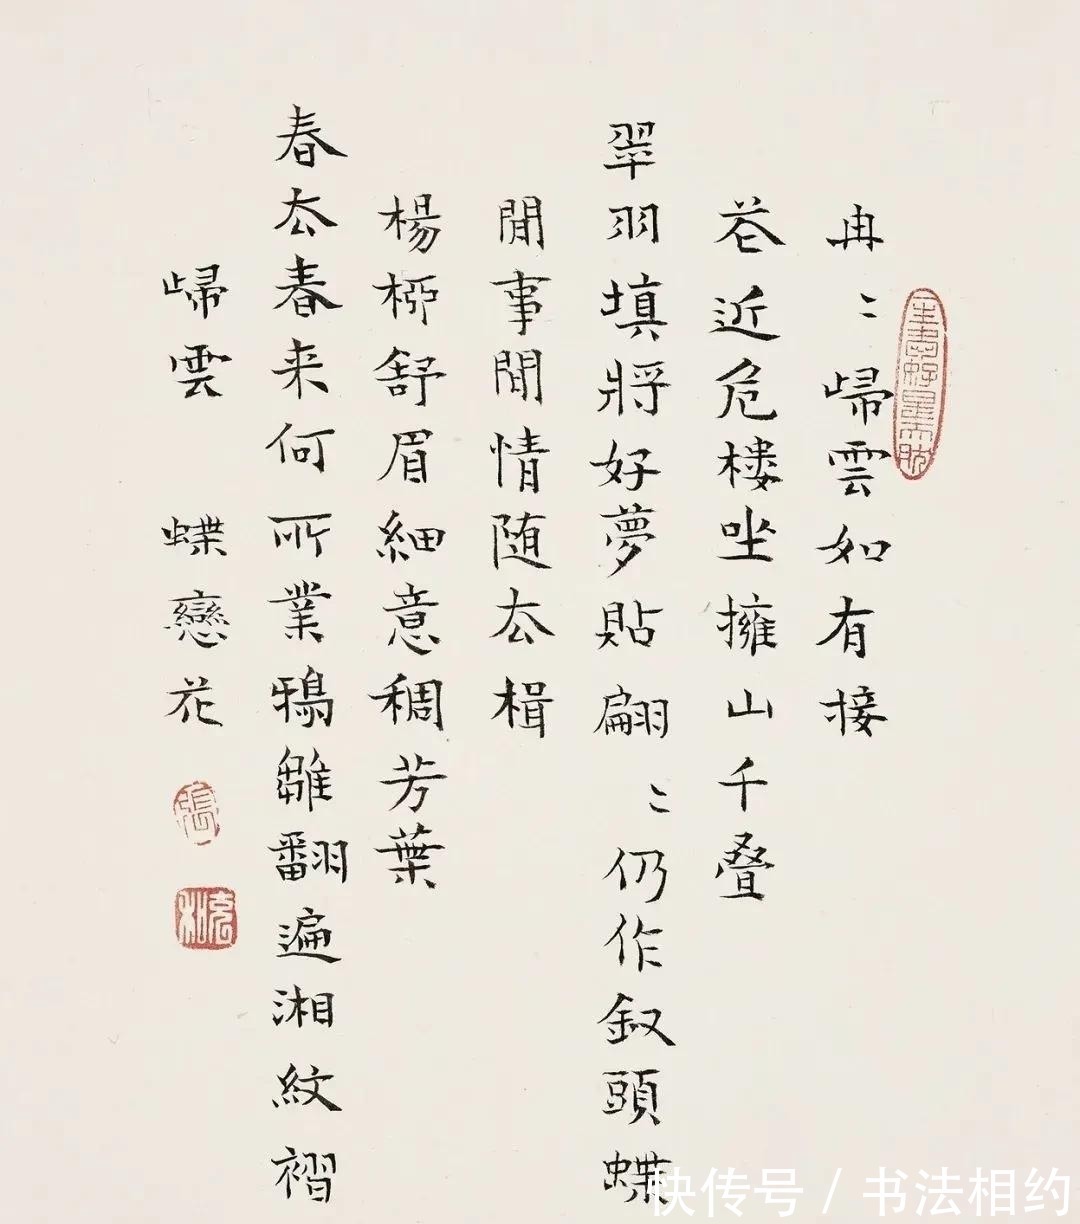 冉〻歸雲如有接
花近危楼坐擁山千叠
翠羽填將好夢貼翩〻仍作釵頭蝶
閒事閒情随去楫
楊柳舒眉細意稠芳葉
春去春来何所業鴉雛翻遍湘紋褶
歸雲 蝶戀花
快传号 / 书法相约